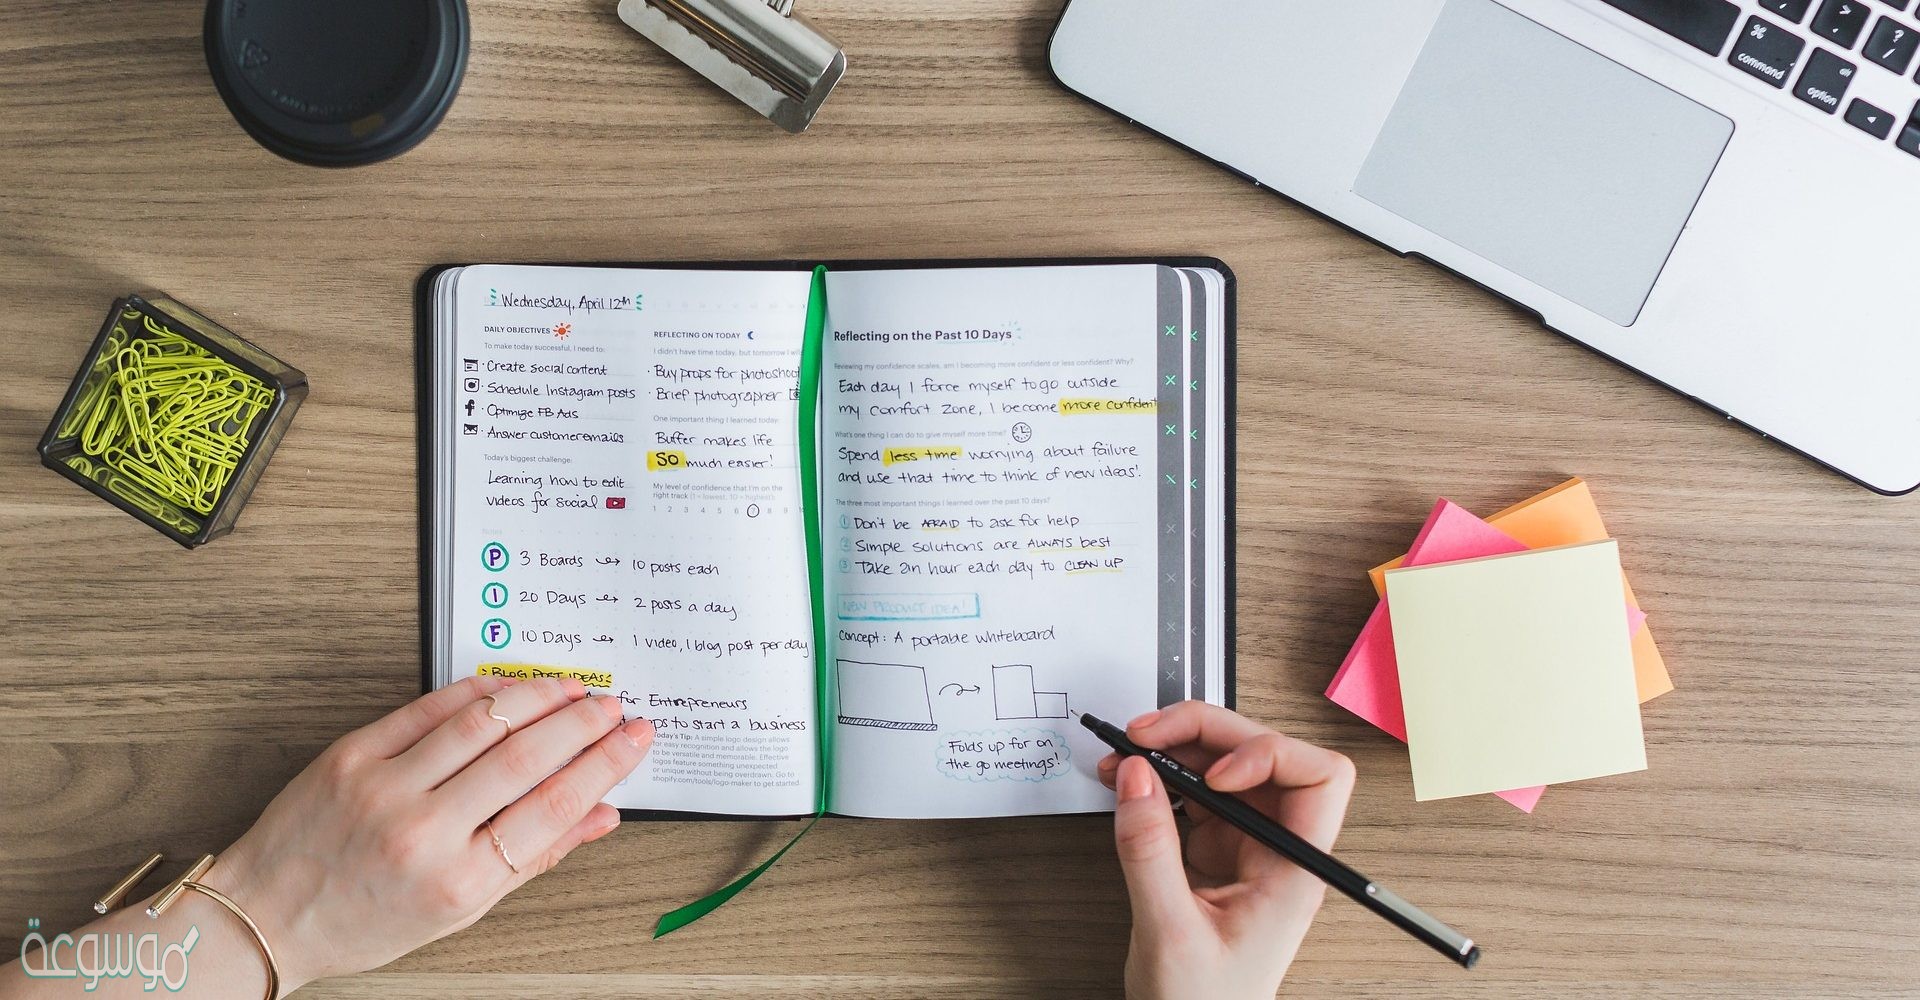 Wednesday, April 12th
DAILY OBJECTIVES
To make today successful, I need to:
· Create social content
· Schedule Instagram posts
f · Optimize FB Ads
· Answer customer emails
Today's biggest challenge:
Learning how to edit
videos for social
REFLECTING ON TODAY
I didn't have time today, but tomorrow I will
· Buy props for photoshoot
· Brief photographer
One important thing I learned today:
Buffer makes life
SO much easier!
My level of confidence that I'm on the
right track (1 = lowest, 10 = highest)
1 2 3 4 5 6 7 8 9
Notes
P 3 Boards → 10 posts each
I 20 Days → 2 posts a day
F 10 Days → 1 video, 1 blog post per day
BLOG POST IDEAS
for Entrepreneurs
to start a business
Today's Tip: A simple logo design allows
for easy recognition and allows the logo
to be versatile and memorable. Effective
logos feature something unexpected
or unique without being overdrawn. Go to
shopify.com/tools/logo-maker to get started.
Reflecting on the Past 10 Days
Reviewing my confidence scales, am I becoming more confident or less confident? Why?
Each day I force myself to go outside
my comfort zone, I become more confident
What's one thing I can do to give myself more time?
Spend less time worrying about failure
and use that time to think of new ideas!
The three most important things I learned over the past 10 days?
1 Don't be AFRAID to ask for help
2 Simple solutions are ALWAYS best
3 Take an hour each day to CLEAN UP
NEW PRODUCT IDEA!
Concept: A portable whiteboard
Folds up for on
the go meetings!
⌘
command
alt
option
>
?
/
موسوعة